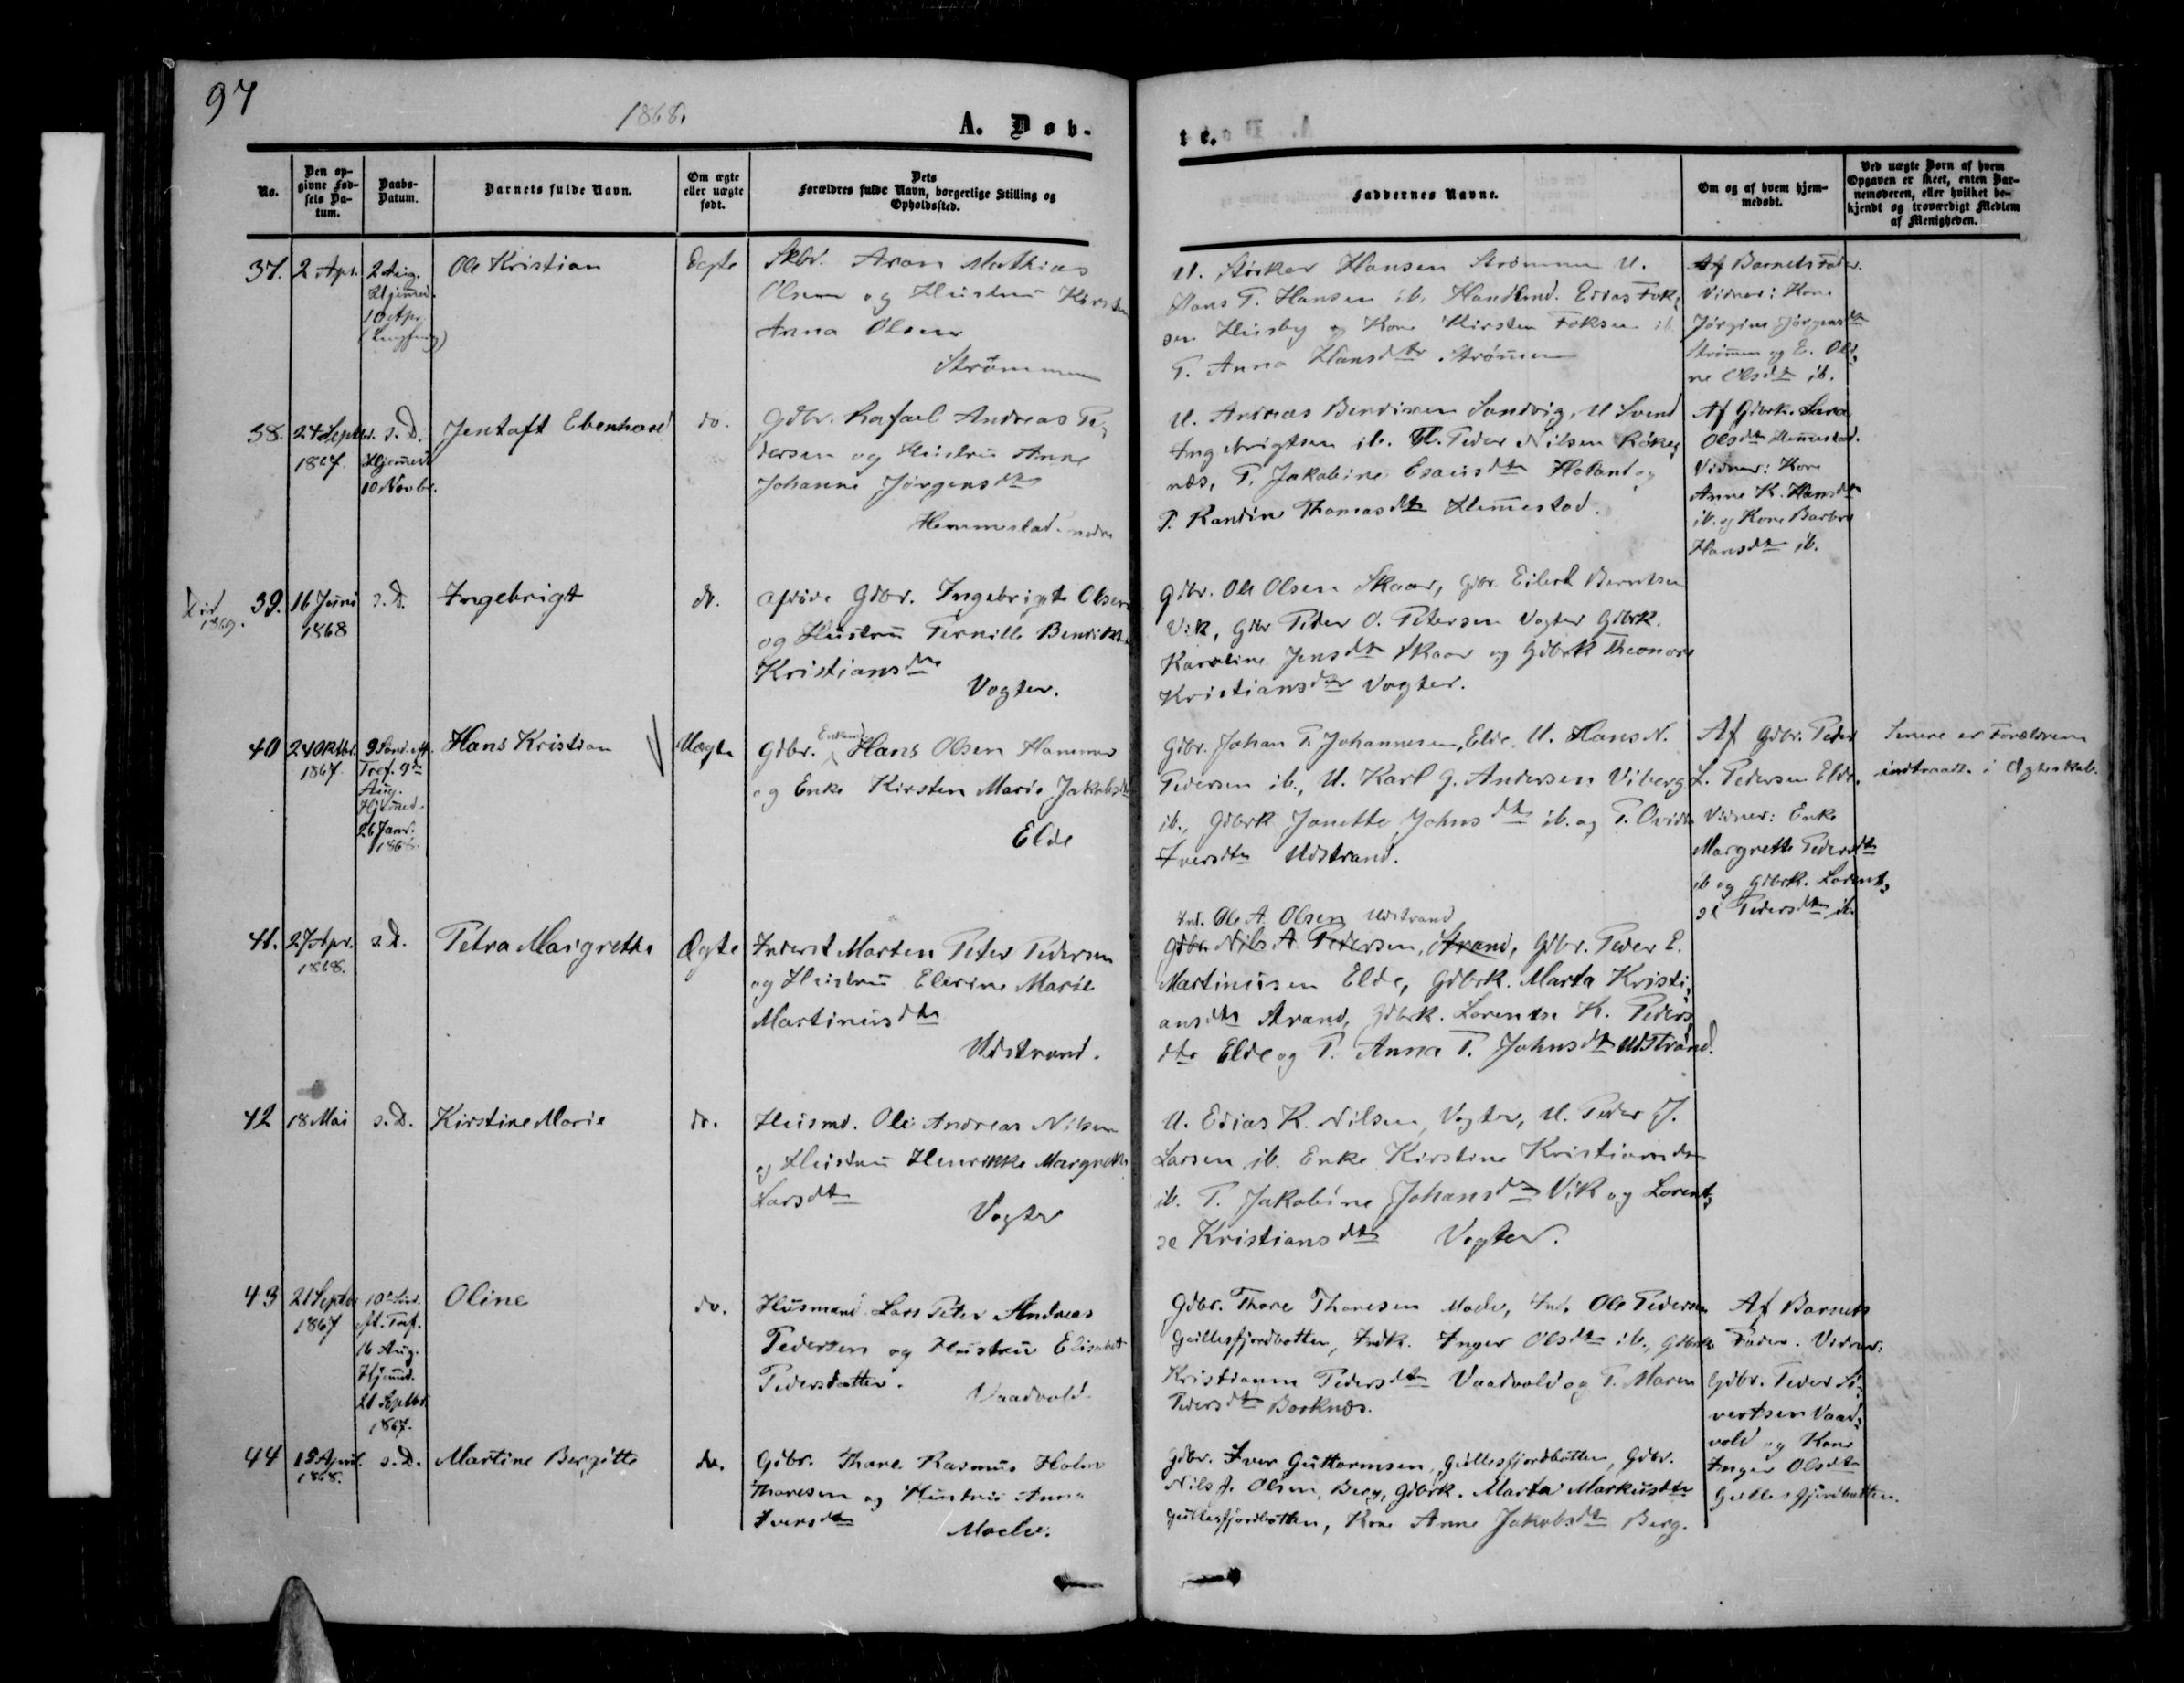 97
1868.
A. Døb-
te.
No.
Den op-
givne Fød-
sels Da-
tum.
Daabs-
Datum.
Barnets fulde Navn.
Om ægte
eller uægte
født.
Dets
Forældres fulde Navn, borgerlige Stilling og
Opholdssted.
Faddernes Navne.
Om og af hvem hjem-
medøbt.
Ved uægte Børn af hvem
Opgaven er skeet, enten Bar-
nemoderen, eller hvilket be-
kjendt og troværdigt Medlem
af Menigheden.
37.
2 Apr.
2 Aug.
Hjemed.
10 Apr.
Ole Kristian
Ægte
Skbr. Aron Mathias
Olsen og Hustru Kirsten
Anna Olsen
Strømmen
U. Størker Hansen Strømmen U.
Hans P. Hansen ib. Edias Fok-
sen Husby og Kone Kirsten Foksen ib.
P. Anna Hansdtr Strømen
Af Barnets Fader.
Vidner: Kone
Jørgine Jørgensdtr
Strømen og E. Oli-
ne Olsdtr ib.
38.
24 Septbr.
1867.
s. D.
Hjemed.
10 Novbr.
Jentoft Ebenhard
do.
Gdbr. Rafael Andreas Pe-
dersen og Hustru Anne
Johanne Jørgensdtr
Hemmestad nedre
U. Andreas Bendixen Sandvig, U Svend
Ingebrigtsen ib. U. Peder Nilsen Røke-
næs, P. Jakobine Esaiusdtr Holand og
P. Randine Thomasdtr Hemestad.
Af Gdbrk. Sara
Olsdtr Hemestad.
Vidner: Kone
Anne K. Hansdtr
ib. og Kone Barbro
Hansdtr ib.
Død
1869.
39.
16 Juni
1868
s. D.
Ingebrigt
do.
afdøde Gdbr. Ingebrigt Olsen
og Hustru Pernille Bendikte
Kristiansdtr
Vogter.
Gdbr. Ole Olsen Skaar, Gdbr. Eilert Berntsen
Vik, Gdbr Peder O. Petersen Vogter Gdbrk.
Karoline Jensdtr Skaar og Gdbrk Theonore
Kristiansdtr Vogter.
40
24 Oktbr.
1867.
9 Sönd. eft.
Tref. 9de
Aug.
Hjemed.
26 Janr.
1868.
Hans Kristian
Uægte
Gdbr. Enkemd Hans Olsen Hammer
og Enke Kirsten Marie Jakobsdtr
Elde
Gdbr. Johan P. Johannesen, Elde, U. Hans N.
Pedersen ib., U. Karl G. Andersen Viberg
ib., Gdbrk Janette Johnsdtr ib. og P. Ovidia
Iversdtr Udstrand.
Af Gdbr. Peder
L. Pedersen Elde.
Vidner: Enke
Margrethe Pedersdtr
ib og Gdbrk. Lorent-
se Pedersdtr ib.
Senere er Forældrene
indtraadte i Ægteskab.
41.
27 Apr.
1868.
s. D.
Petra Margrethe
Ægte
Inderst Morten Peter Pedersen
og Hustru Elerine Marie
Martinusdtr
Udstrand.
Ind. Ole A. Olsen Udstrand
Gdbr. Nils A. Pedersen, Strand, Gdbr. Peder E.
Martinusen Elde, Gdbrk. Marta Kristi-
ansdtr Strand, Gdbrk. Lorentse K. Peders-
dtr Elde og P. Anna P. Johnsdtr Udstrand.
42
18 Mai
s. D.
Kirstine Marie
do.
Husmd. Ole Andreas Nilsen
og Hustru Henrikke Margrethe
Larsdtr
Vogter
U. Edias K. Nilsen, Vogter, U. Peder J.
Larsen ib. Enke Kirstine Kristiansdtr
ib. P. Jakobine Johansdtr Vik og Lorent-
se Kristiansdtr Vogter.
43
21 Septbr
1867
10de Sönd.
eft. Tref.
16 Aug.
Hjemd.
21 Septbr.
1867.
Oline
do.
Husmand Lars Peter Andreas
Pedersen og Hustru Elisabet
Pedersdatter.
Vaadvold
Gdbr. Thore Thoresen Moelv, Ind. Ole Pedersen
Gullesfjordbotten, Indk. Inger Olsdtr ib., Gdbrk
Kristianna Pedersdtr Vaadvold og P. Maren
Pedersdtr Borknes.
Af Barnets
Fader. Vidner:
Gdbr. Peder Si-
vertsen Vaad-
vold og Kone
Inger Olsdtr
Gullesfjordbotten.
44
15 April.
1868.
s. D.
Martine Bergitte
do.
Gdbr. Thore Rasmus Holm
Thoresen og Hustru Anna
Iversdtr
Moelv.
Gdbr. Iver Guttormsen, Gullesfjordbotten, Gdbr.
Nils J. Olsen, Berg, Gdbrk. Marta Markusdtr
Gullesfjordbotten, Kone Anne Jakobsdtr Berg.